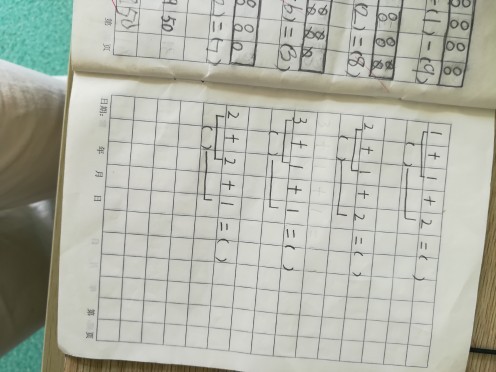 1) - (9)
2) = (8)
) = (3)
50
第 页
1 + 1 + 2 = ( )
( )
2 + 1 + 2 = ( )
( )
3 + 1 + 1 = ( )
( )
2 + 2 + 1 = ( )
( )
日期: 年 月 日 第 页